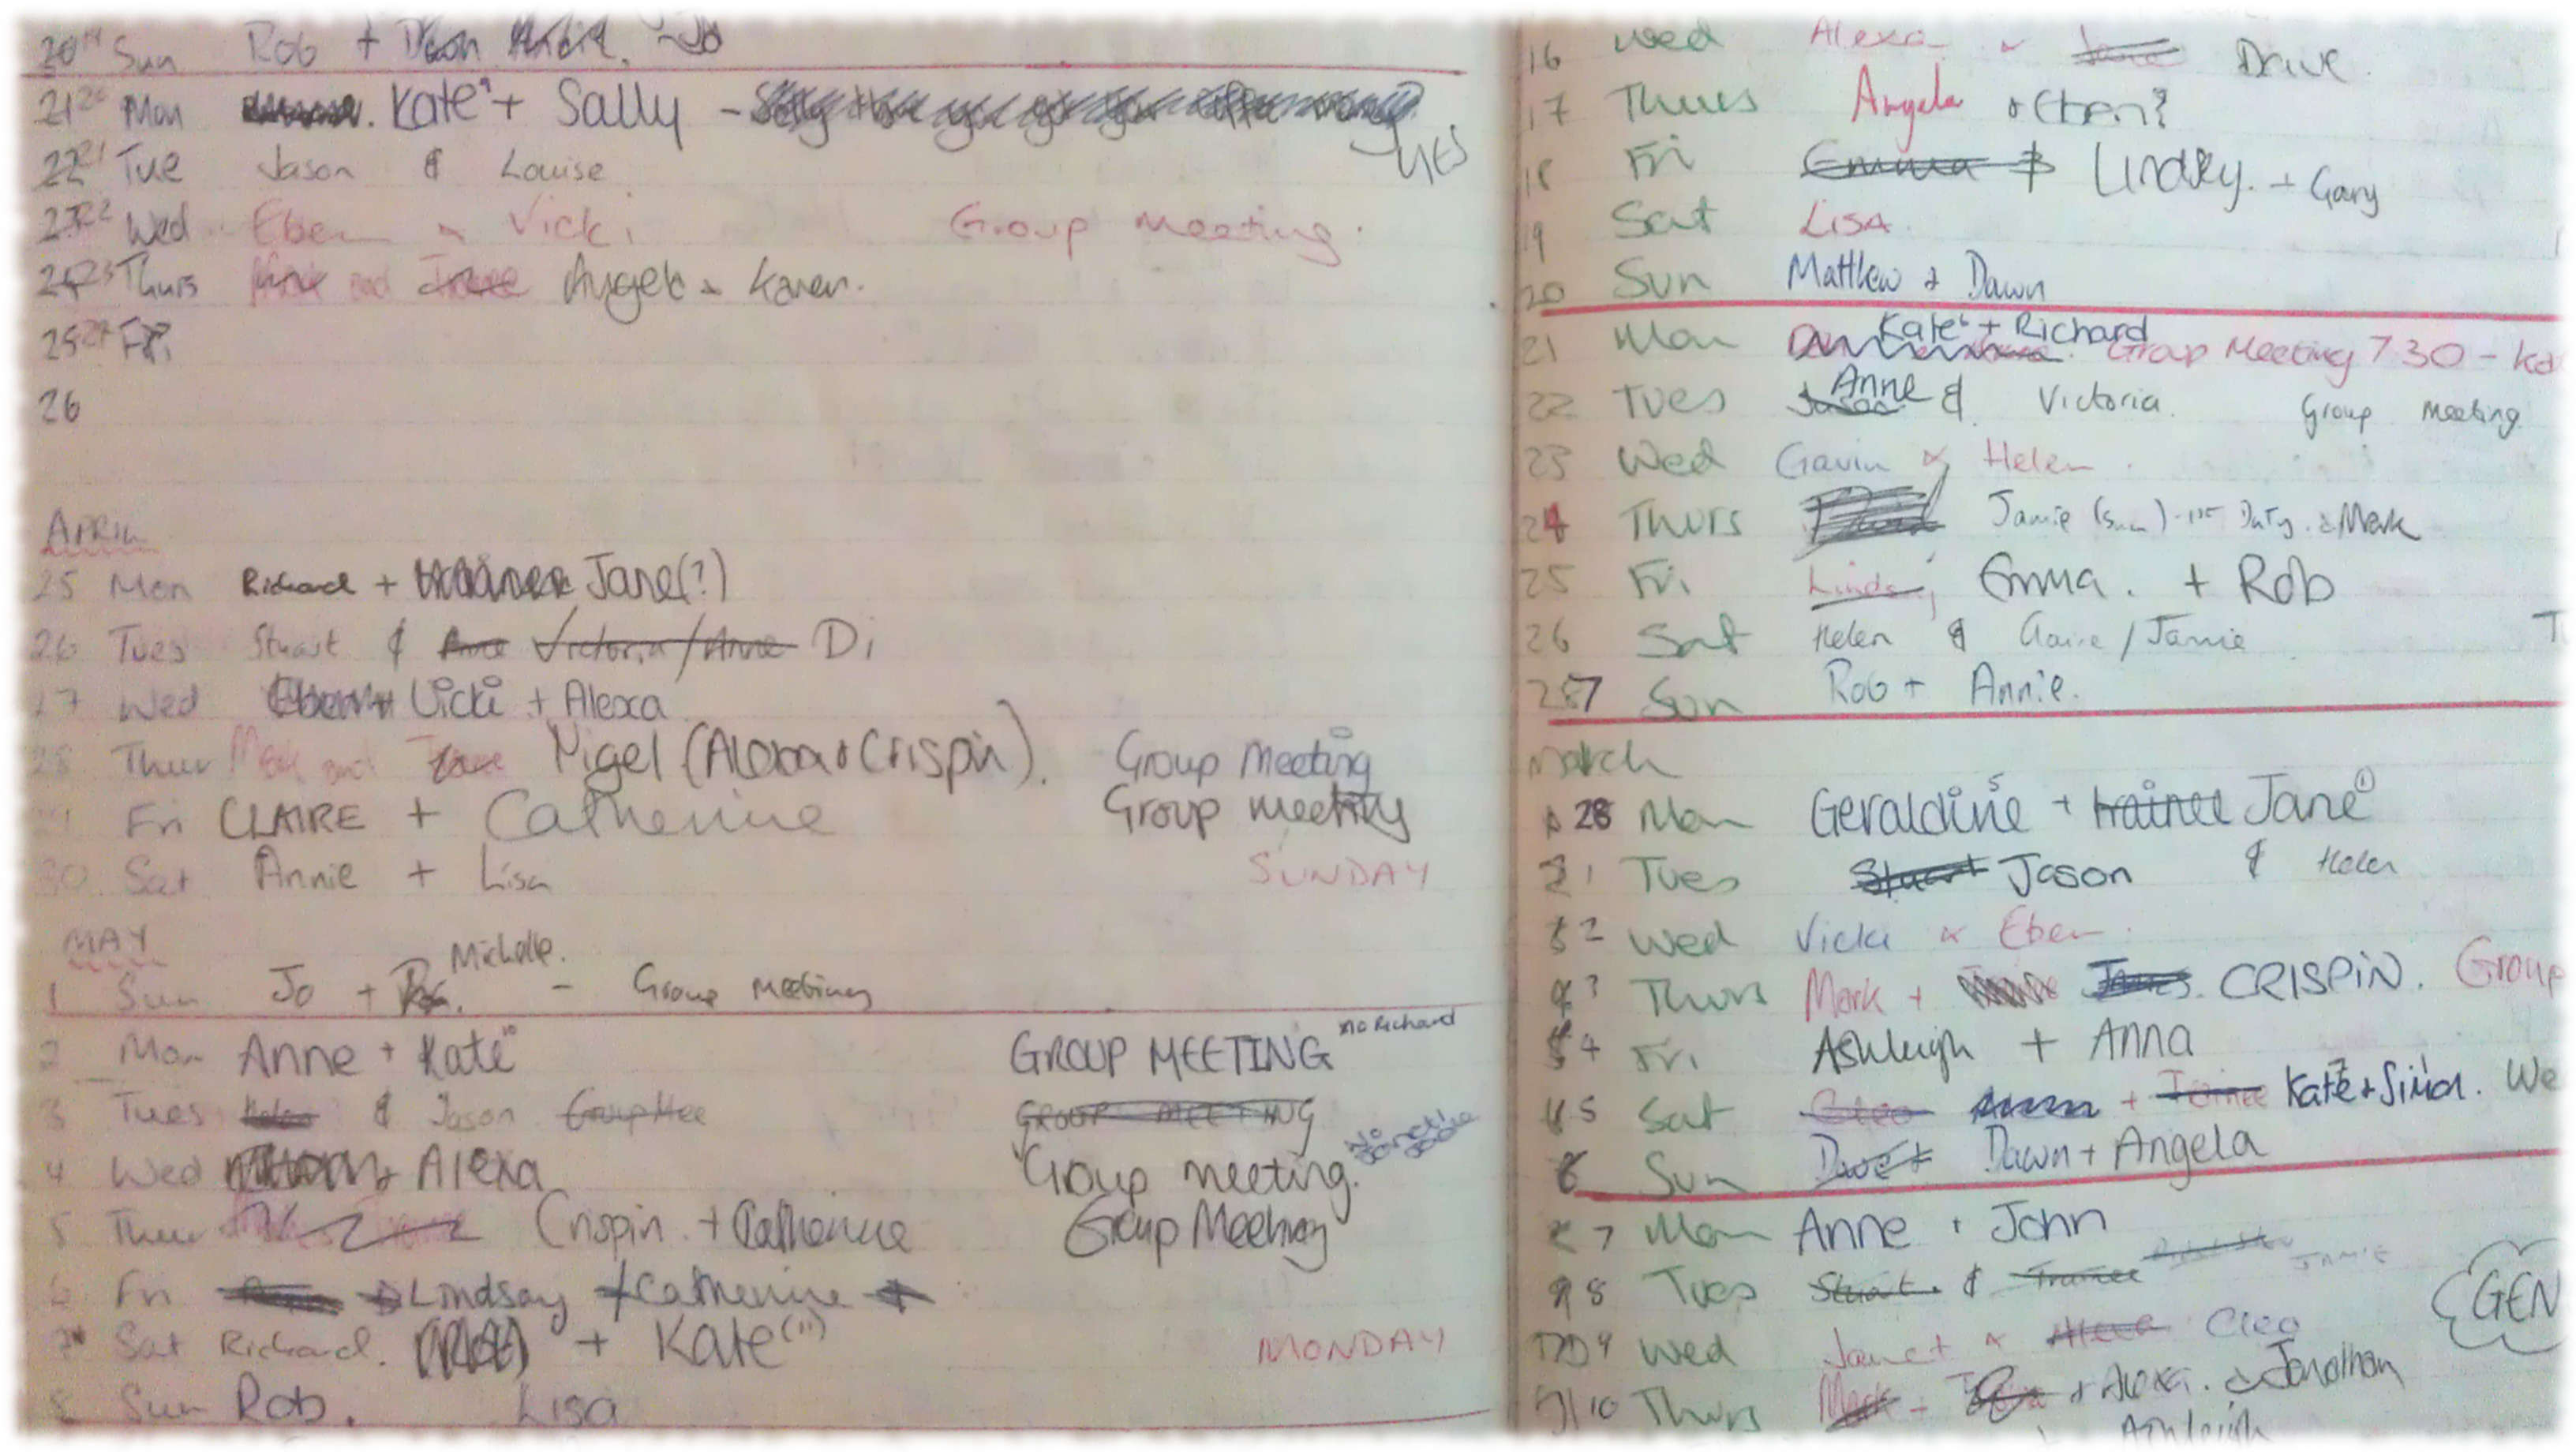 20th Sun Rob + Dawn Jo
21 Mon Kate + Sally - YES
22 21 Tue Jason & Louise
23 22 Wed Eben & Vicki Group Meeting.
24 23 Thurs and Angela & Karen.
25 24 Fri
26
APRIL
25 Mon Richard + trainee Jane (?)
26 Tues Stuart & Anne Victoria / Anne Di
27 Wed Eben + Vicki + Alexa
28 Thur Mark and Jane Nigel (Alexa + Crispin). Group Meeting
Fri CLAIRE + Catherine Group meeting
30 Sat Annie + Lisa SUNDAY
MAY
1 Sun Jo + Michelle. - Group Meeting
2 Mon Anne + Kate GROUP MEETING no Richard
3 Tues Helen & Jason Group Mee GROUP MEETING
4 Wed + Alexa Group meeting. No
5 Thur Crispin + Catherine Group Meeting
6 Fri Lindsay + Catherine +
7 Sat Richard. (Rob) + Kate (11) MONDAY
8 Sun Rob. Lisa
16 Wed Alexa & Jane Dave
17 Thurs Angela & Eben?
18 Fri Emma & Lindsey. + Gary
19 Sat LISA
20 Sun Matthew & Dawn
21 Mon Kate + Richard Group Meeting 7 30 - Kd
22 Tues Jason Anne & Victoria. Group Meeting
23 Wed Gavin & Helen.
24 Thurs Jamie (Sun) - 1st Duty. & Mark
25 Fri Lindsay Emma. + Rob
26 Sat Helen & Claire / Jamie T
27 Sun Rob + Annie.
March
28 Mon Geraldine + trainee Jane
1 Tues Stuart Jason & Helen
2 Wed Vicki & Eben.
3 Thurs Mark + James CRISPIN. Group
4 Fri Ashleigh + Anna
5 Sat Cleo + Trainee Kate + Simon. We
6 Sun Dave + Dawn + Angela
7 Mon Anne + John
8 Tues Stuart. & Trainee JAMIE
9 Wed Janet & Alexa Cleo GEN
10 Thurs Mark + + Alexa. & Jonathan
Ashleigh